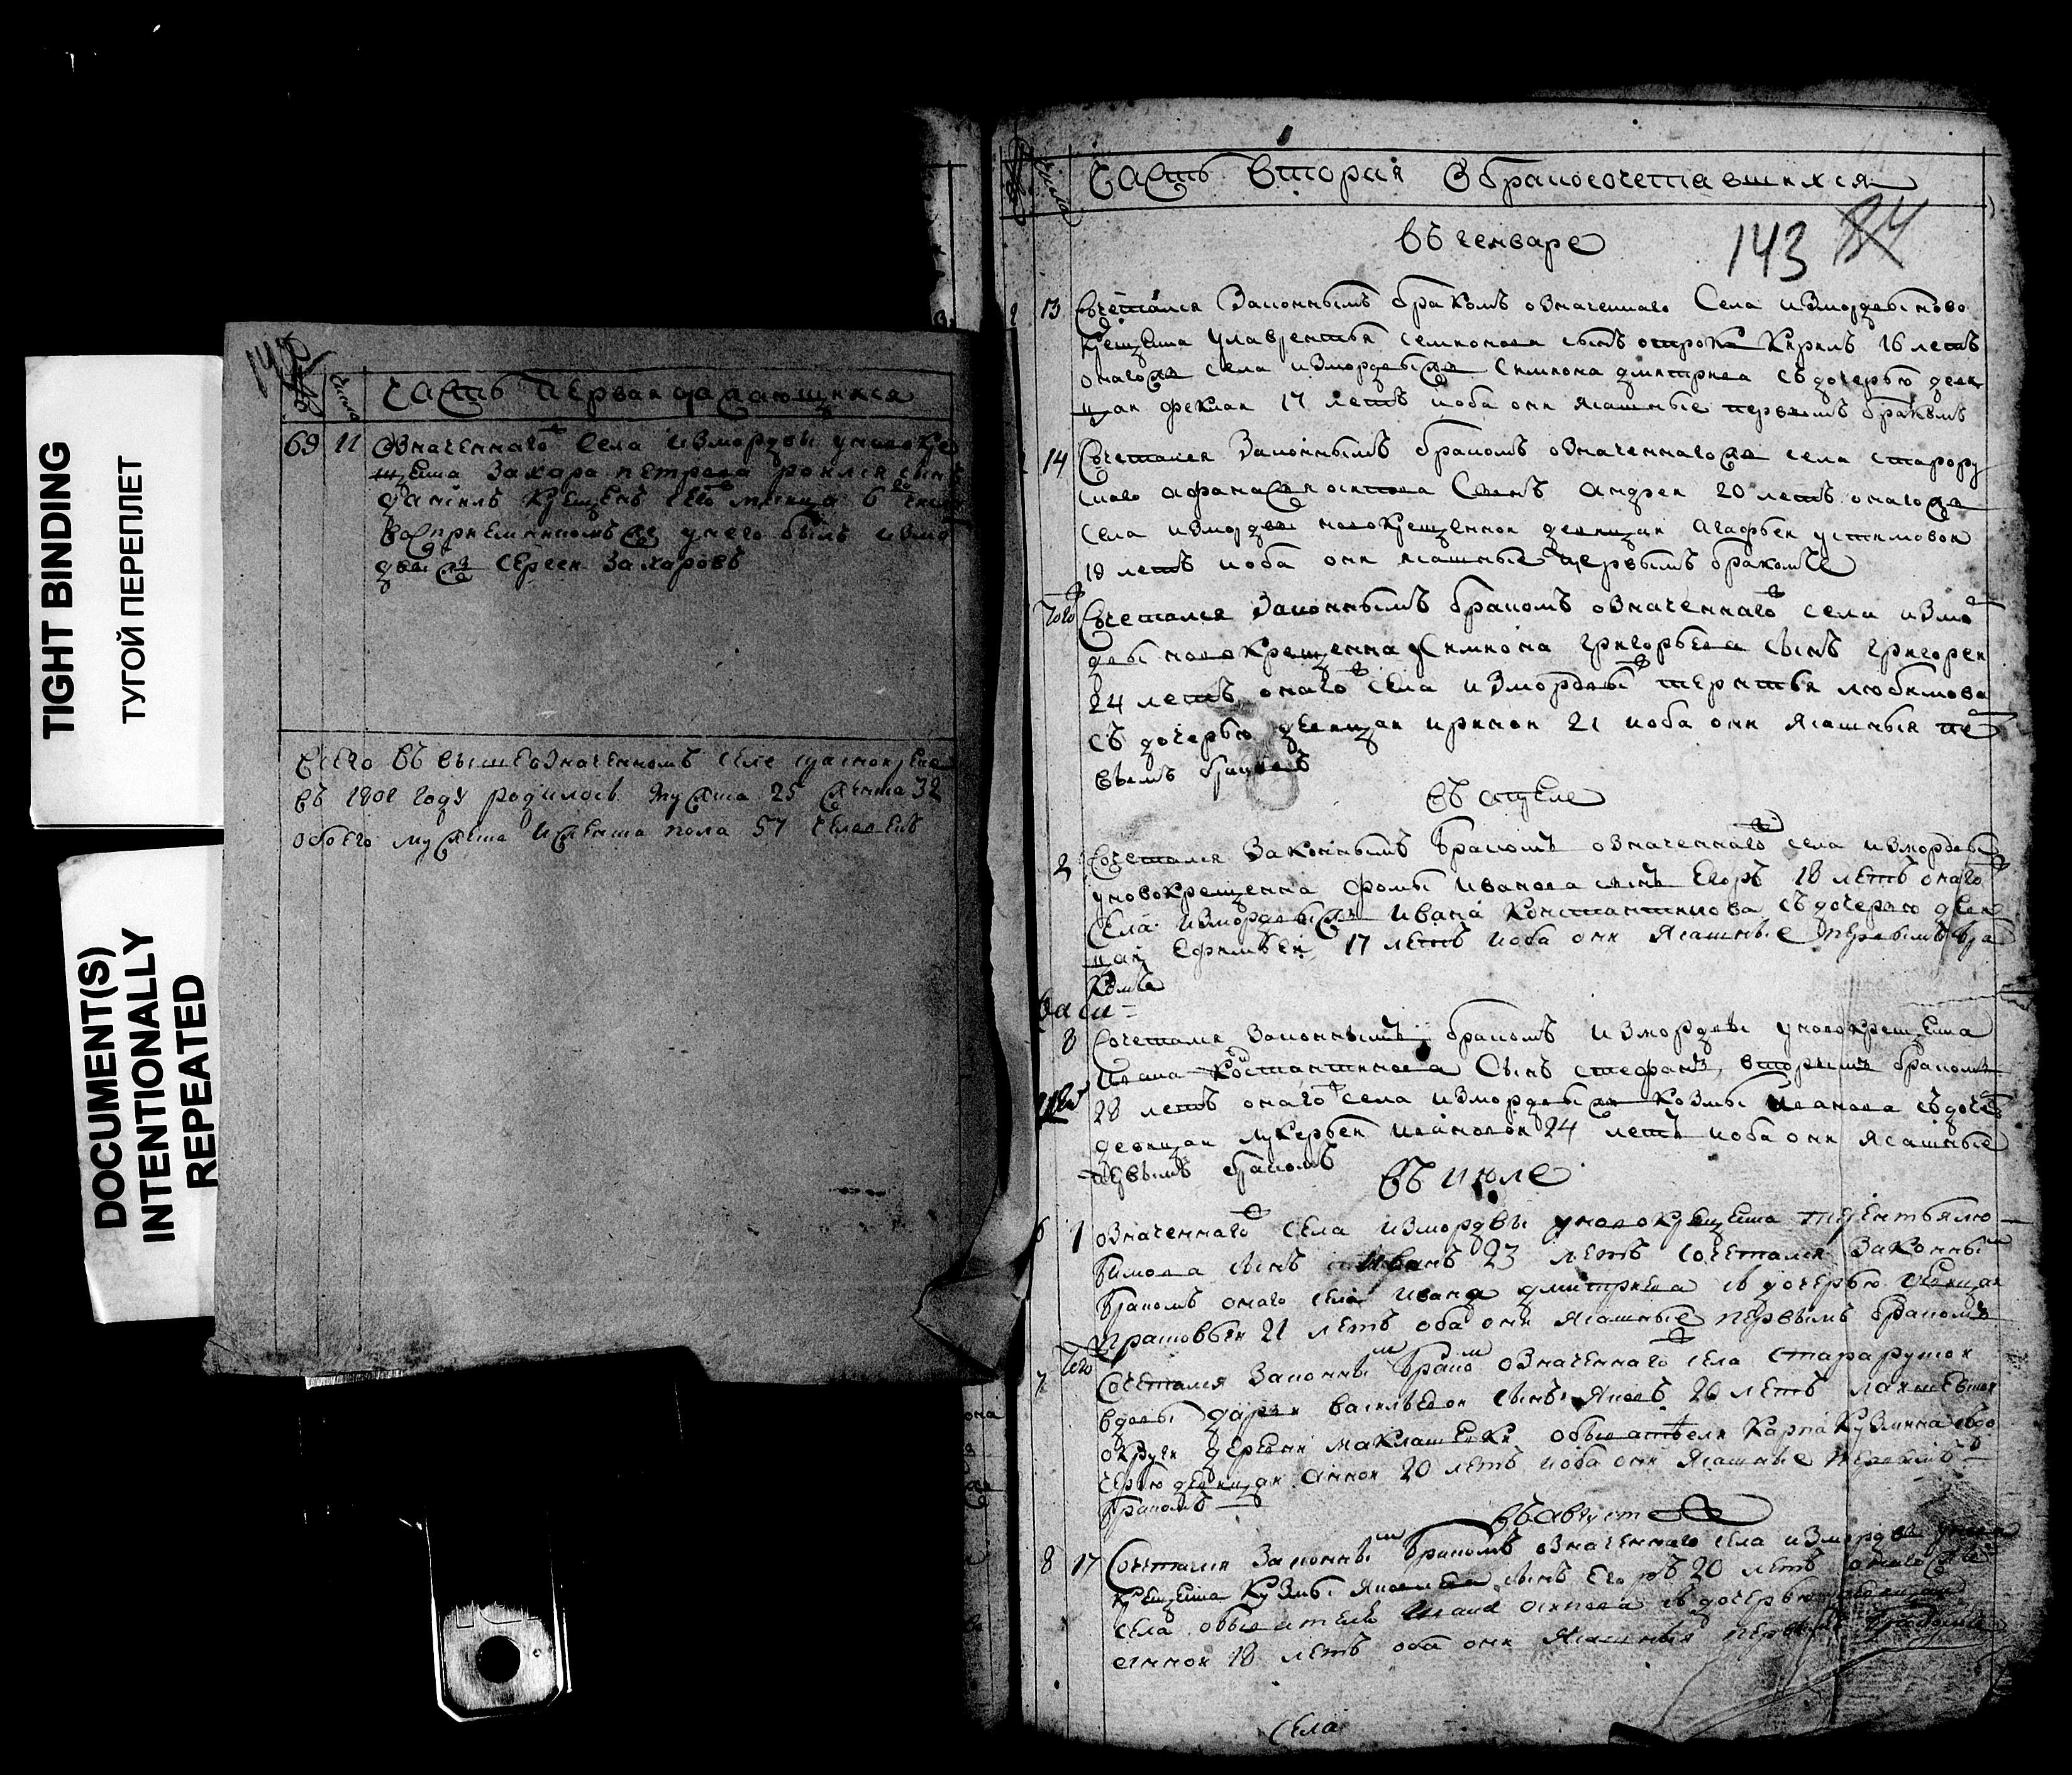 TIGHT BINDING
ТУГОЙ ПЕРЕПЛЕТ
DOCUMENT(S)
INTENTIONALLY
REPEATED
числа
часть первая ораждающихся
69 11 означеннаго села измордвы уновокре
щена Захара петрова родился сынъ
даниілъ крещенъ сего месяца
восприемникомъ же унего былъ измо
двы же сергеи Захаровъ
всего въ вышеозначенномъ селе
въ 1801 году родилось мужеска 25 женска 32
обоего мужеска иженска пола 57 человекъ
числа
часть вторая обракосочетавшихся
въ генваре
143 84
13 Сочетался Законнымъ бракомъ означеннаго Села измордвы ново
крещена улаврентья семионова сынъ отрокъ Кирилъ 16 летъ
онагоже села измордвыже Симиона дмитриева съ дочерью деви
цаи феклаи 17 летъ иоба они ясашные первымъ бракомъ
14 Сочетался Законнымъ бракомъ означеннагоже села старору
скаго афанасья осипова Сынъ Андреи 20 летъ онагоже
села измордвы новокрещеннои девицаи Агафьеи устимовои
19 летъ иоба они ясашные первымъ бракомъ
того Сочетался Законнымъ бракомъ означеннагоже села измо
двы новокрещенна Симиона григорьева сынъ григореи
24 летъ онагоже села измордвыже терентья любимова
съ дочерью девицаи ириною 21 иоба они ясашныя пе
рвымъ бракомъ
въ апреле
2 Сочетался Законнымъ бракомъ означеннагоже села измордвы
уновокрещенна фомы Иванова сынъ Егоръ 18 летъ онагоже
Села измордвыже Ивана Константинова съ дочерью деви
цаи Ефимьеи 17 летъ иоба они ясашные первымъ бра
комъ
8 Сочетался Законнымъ бракомъ измордвы уновокрещена
Ивана Костантинова Сынъ стефанъ вторымъ бракомъ
28 летъ онагоже села измордвыже Козмы Иванова съ доче
девицаи лукерьеи Ивановои 24 летъ иоба они ясашные
первымъ бракомъ
въ июле
6 1 означеннагоже села измордвы уновокрещена терентья лю
бимова сынъ Иванъ 23 летъ сочетался Законны
бракомъ онаго села Ивана дмитриева съ дочерью девицаи
Прасковьеи 21 летъ оба они ясашные первымъ бракомъ
7 того Сочетался Законны брако означеннагоже села старарускои
вдовы дарьи васильевои сынъ Яковъ 26 летъ лаишевскои
округи деревни маклашевки обывателя Карпа Кузмина съ до
черью девицаи Аннои 20 летъ иоба они ясашные первымъ
бракомъ
въ августе
8 17 Сочетался Законны бракомъ означеннаго села измордвы уново
крещена Кузмы Яковлева сынъ Егоръ 20 летъ онагоже
села обывателя Ивана осипова съ дочерью девицаи
аннои 18 летъ оба они ясашныя первымъ бракомъ
Села